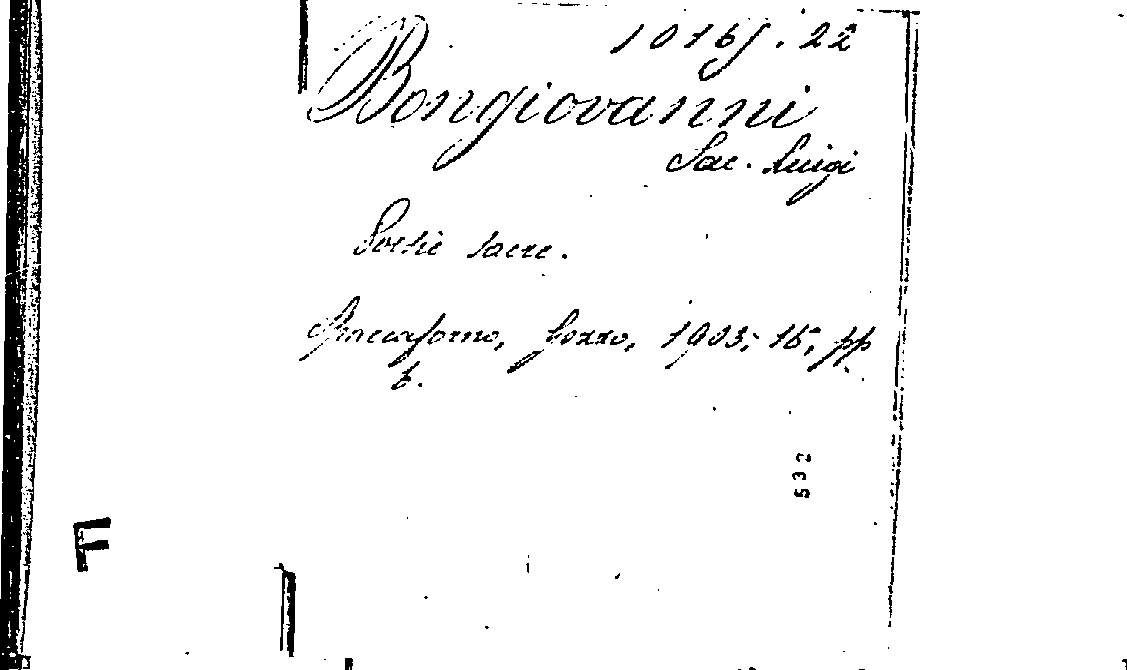 1016f.22
Bongiovanni
Sac. Luigi
Poesie sacre.
Spaccaforno, Gozzo, 1903; 16°, pp
6.
532
F